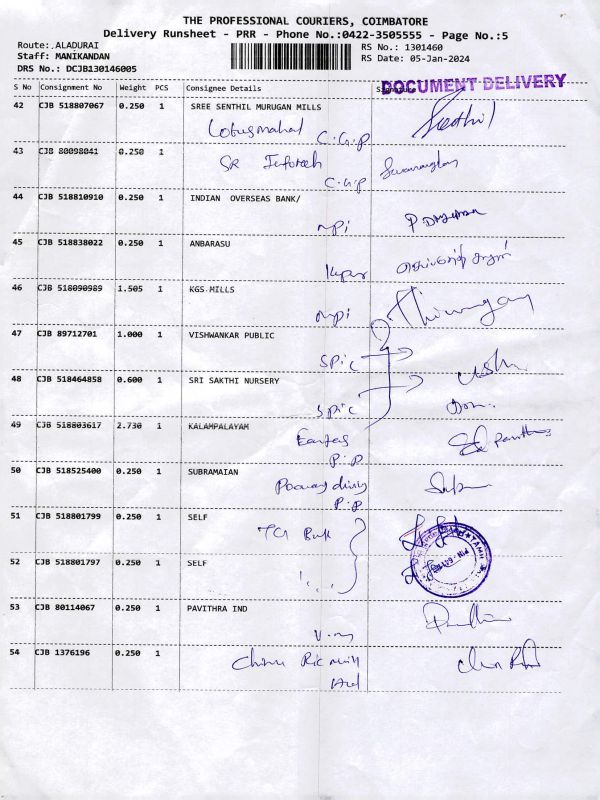 THE PROFESSIONAL COURIERS, COIMBATORE
Delivery Runsheet - PRR - Phone No.:0422-3505555 - Page No.:5
Route: ALADURAI
Staff: MANIKANDAN
DRS No.: DCJB130146005
RS No.: 1301460
RS Date: 05-Jan-2024
DOCUMENT DELIVERY
S No Consignment No Weight PCS Consignee Details Signature
42 CJB 518807067 0.250 1 SREE SENTHIL MURUGAN MILLS
Lotusmahal C.G.P Senthil
43 CJB 80098041 0.250 1
SR Infotech
C.G.P
44 CJB 518810910 0.250 1 INDIAN OVERSEAS BANK/
mpi
45 CJB 518838022 0.250 1 ANBARASU
46 CJB 518090989 1.505 1 KGS MILLS
mpi
47 CJB 89712701 1.000 1 VISHWANKAR PUBLIC
SPic
48 CJB 518464858 0.600 1 SRI SAKTHI NURSERY
SPic
49 CJB 518803617 2.730 1 KALAMPALAYAM
P.P
50 CJB 518525400 0.250 1 SUBRAMAIAN
P.P
51 CJB 518801799 0.250 1 SELF
52 CJB 518801797 0.250 1 SELF
53 CJB 80114067 0.250 1 PAVITHRA IND
54 CJB 1376196 0.250 1